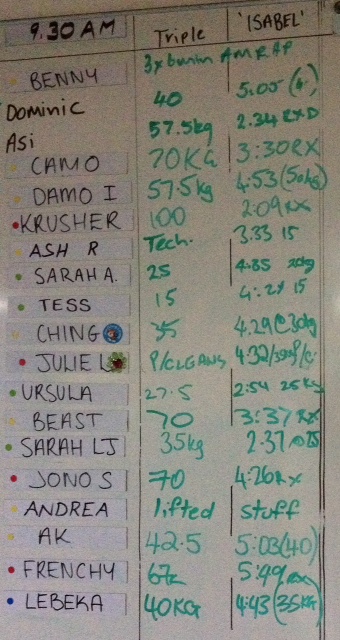 9.30 AM Triple 'ISABEL'
3x 6min AMRAP
BENNY 40 5:05
Dominic 57.5kg 2:34 RXD
Asi 70KG 3:30 RX
CAMO 57.5kg 4:53 (50kg)
DAMO I 100 2:09 RX
KRUSHER Tech. 3:33 15
ASH R
SARAH A. 25 4:85
TESS 15 15
CHING 35 4.29@30kg
JULIE L P/CLEANS 4:32
URSULA 27.5 2:54 25kg
BEAST 70 3:37 RX
SARAH LJ 35kg 2.37
JONO S 70 4:26 Rx
ANDREA lifted stuff
AK 42.5 5:03(40)
FRENCHY 5:49 RX
LEBEKA 40KG 4:43 (35KG)